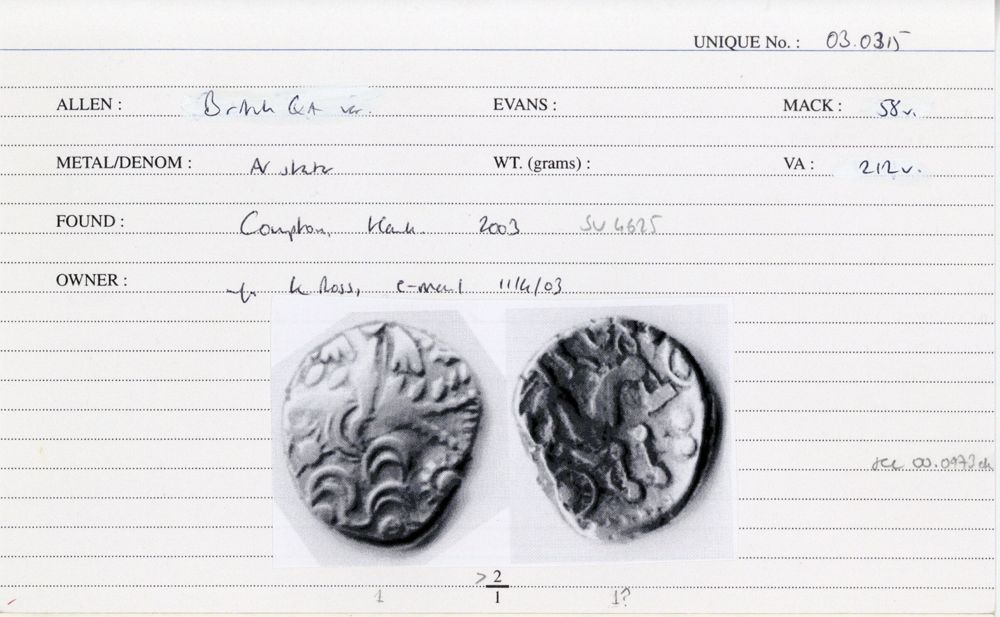 UNIQUE No. : 03.0315
ALLEN : British QA var. EVANS : MACK : 58v.
METAL/DENOM : AV stater WT. (grams) : VA : 212v.
FOUND : Compton, Hants. 2003 SU 4625
OWNER : K Ross, e-mail 11/4/03
see 00.0973
> 2
1 1 1?